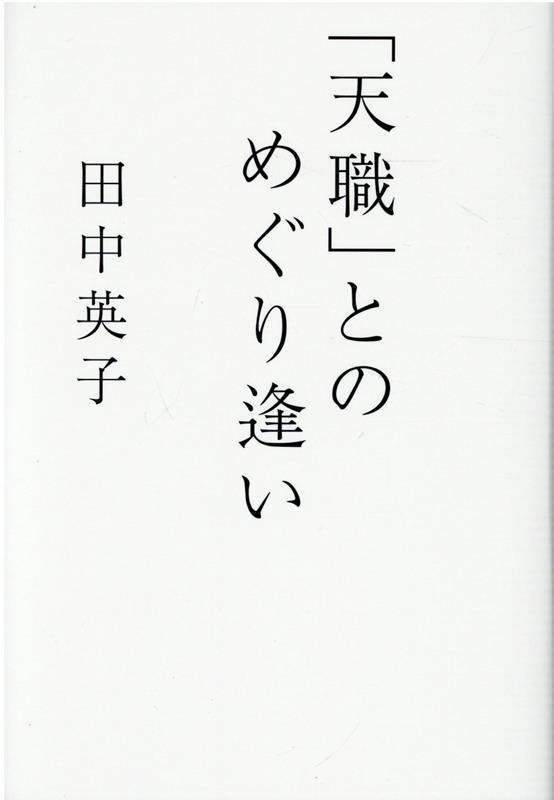 「天職」との
めぐり逢い
田中英子